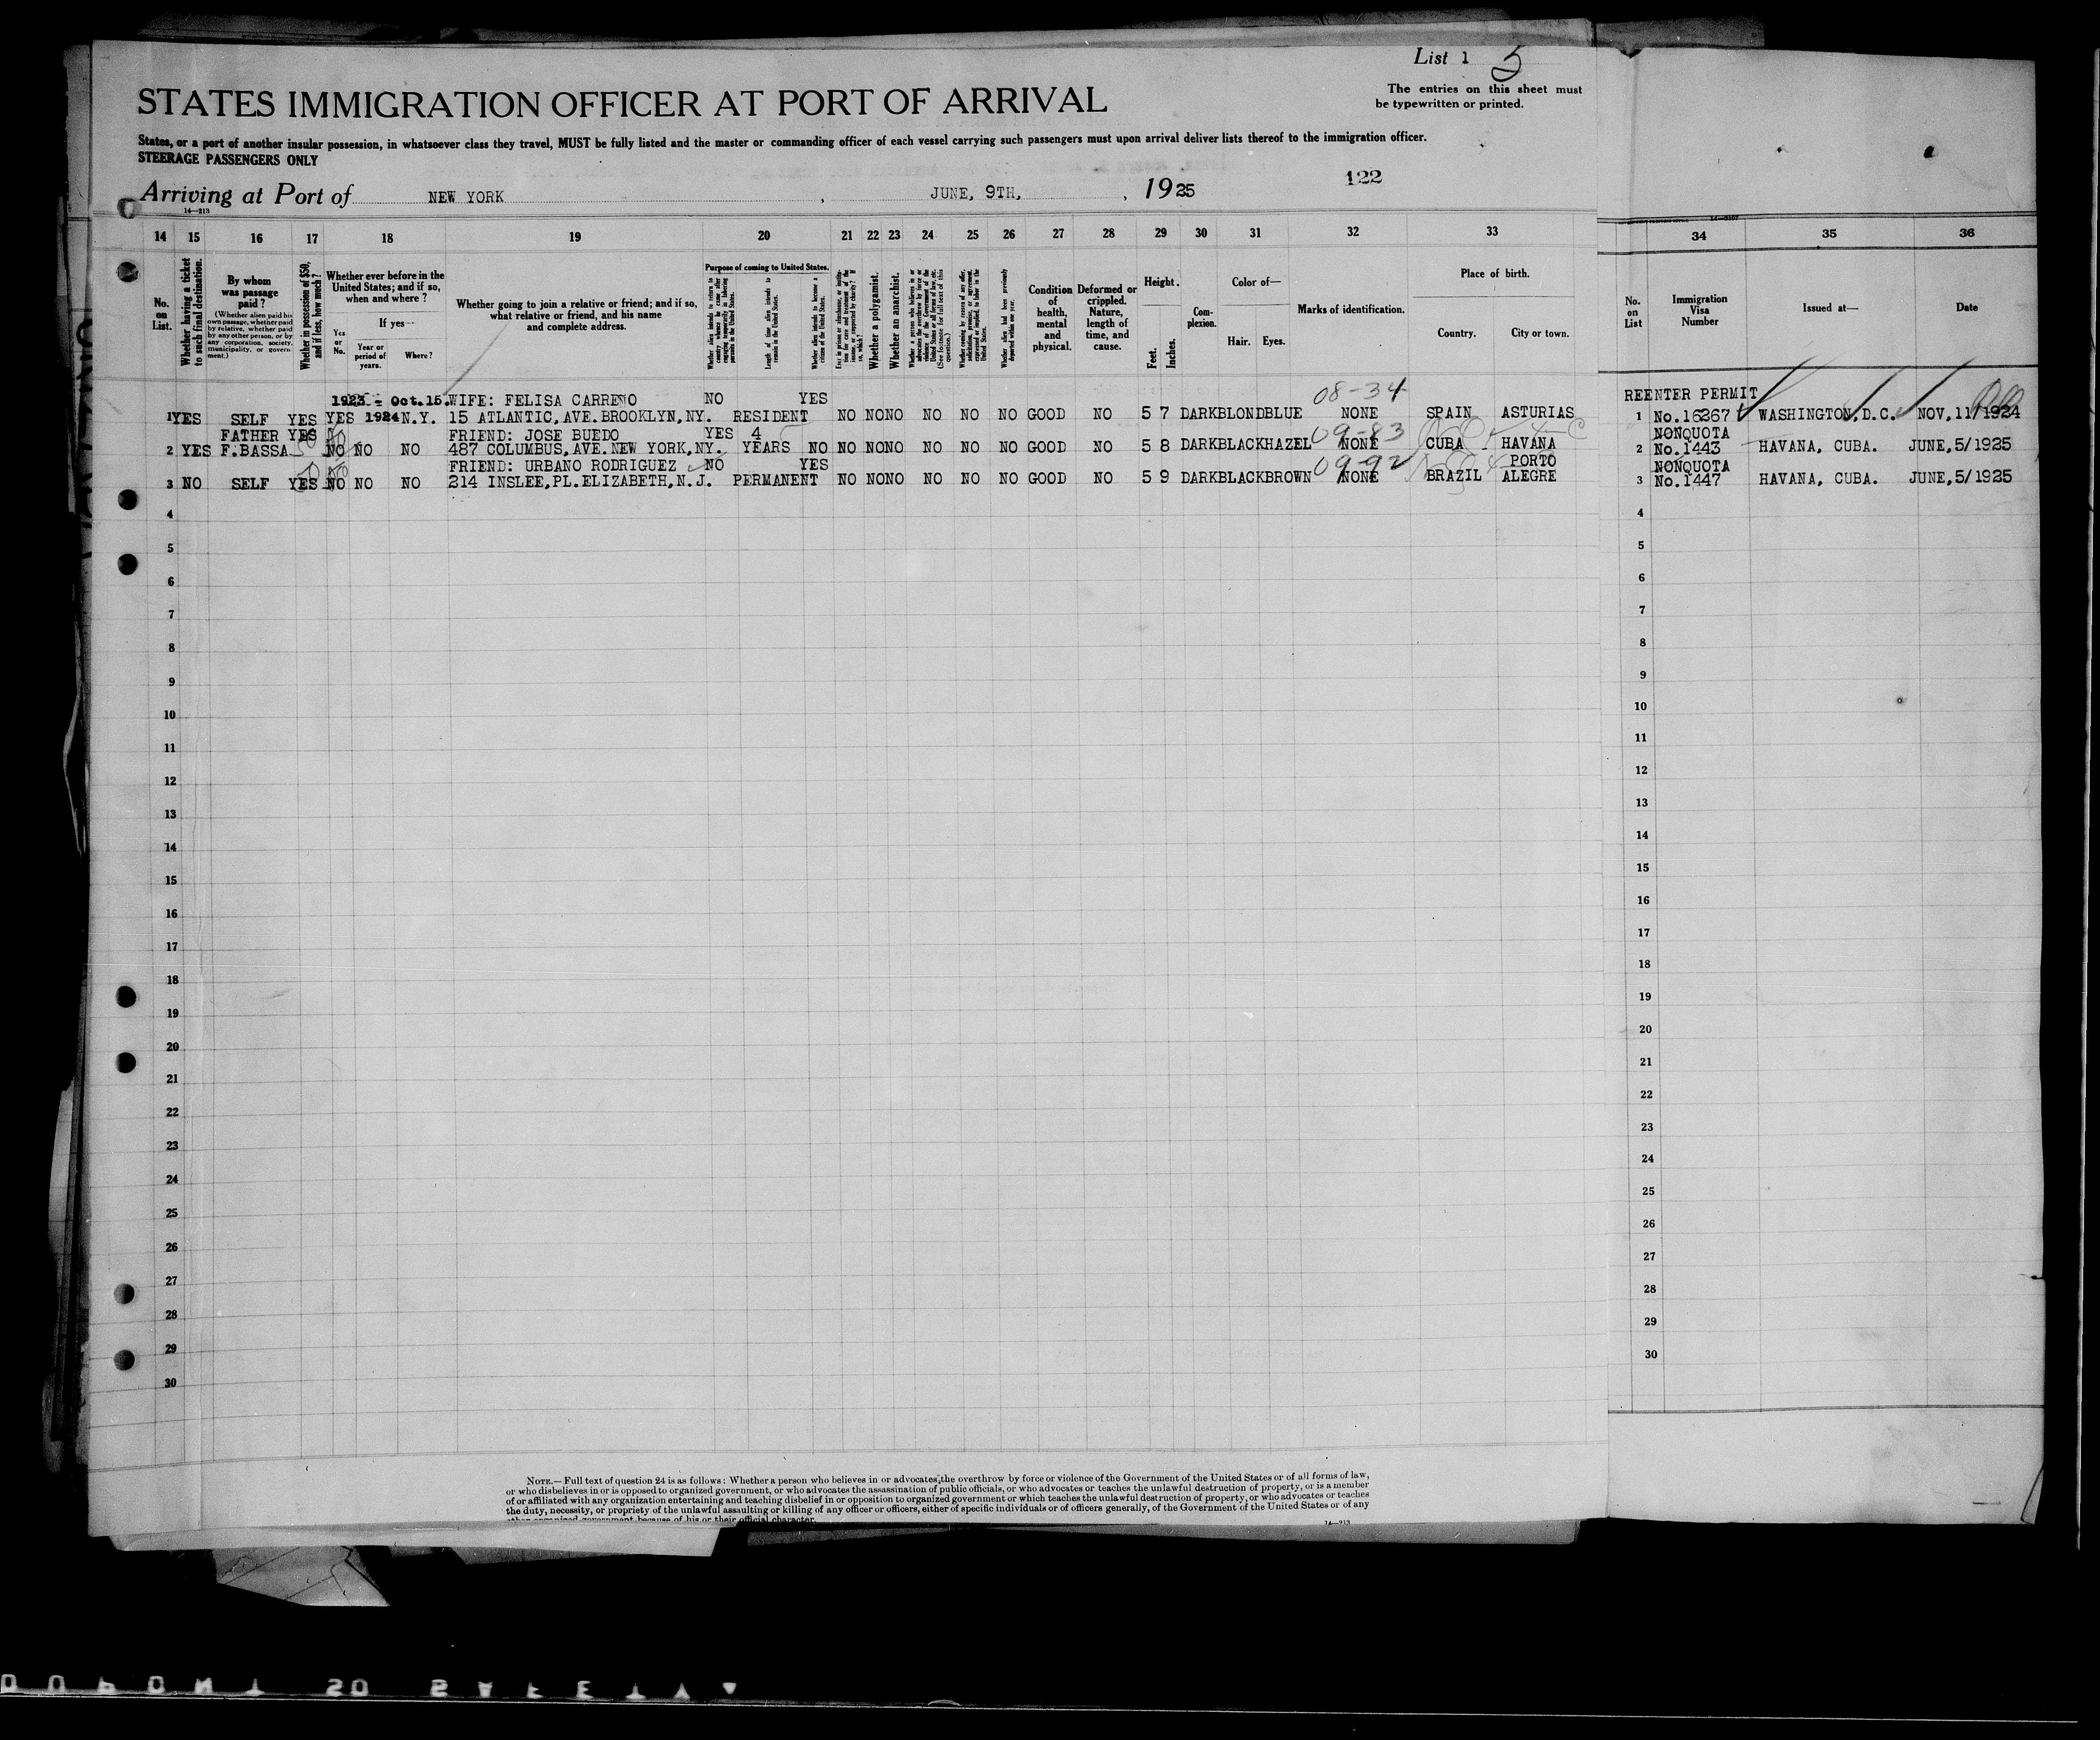 List 1 5
The entries on this sheet must
be typewritten or printed.
STATES IMMIGRATION OFFICER AT PORT OF ARRIVAL
States, or a port of another insular possession, in whatsoever class they travel, MUST be fully listed and the master or commanding officer of each vessel carrying such passengers must upon arrival deliver lists thereof to the immigration officer.
STEERAGE PASSENGERS ONLY
Arriving at Port of NEW YORK , JUNE, 9TH, , 1925
122
14—213
14 15 16 17 18 19 20 21 22 23 24 25 26 27 28 29 30 31 32 33 34 35 36
No. on List.
Whether having a ticket to such final destination.
By whom was passage paid?
(Whether alien paid his own passage, whether paid by relative, whether paid by any other person, or by any corporation, society, municipality, or government.)
Whether in possession of $50, and if less, how much?
Whether ever before in the United States; and if so, when and where?
Yes or No.
If yes—
Year or period of years.
Where?
Whether going to join a relative or friend; and if so, what relative or friend, and his name and complete address.
Purpose of coming to United States.
Length of time alien intends to remain in the United States.
Whether alien intends to become a citizen of the United States.
Whether a polygamist.
Whether an anarchist.
Condition of health, mental and physical.
Deformed or crippled. Nature, length of time, and cause.
Height.
Feet.
Inches.
Complexion.
Color of—
Hair.
Eyes.
Marks of identification.
Place of birth.
Country.
City or town.
No. on List
Immigration Visa Number
Issued at—
Date
1923 - Oct.15. WIFE: FELISA CARRENO NO YES 08-34 REENTER PERMIT
1 YES SELF YES YES 1924 N.Y. 15 ATLANTIC,AVE.BROOKLYN,NY. RESIDENT NO NO NO NO NO NO GOOD NO 5 7 DARK BLOND BLUE NONE SPAIN ASTURIAS 1 No.16267 WASHINGTON,D.C. NOV,11/1924
FATHER YES FRIEND: JOSE BUEDO YES 4 09-83 NONQUOTA
2 YES F.BASSA NO NO NO 487 COLUMBUS,AVE.NEW YORK,NY. YEARS NO NO NO NO NO NO NO GOOD NO 5 8 DARK BLACK HAZEL NONE CUBA HAVANA 2 No.1443 HAVANA, CUBA. JUNE,5/1925
FRIEND: URBANO RODRIGUEZ NO YES 09-92 PORTO NONQUOTA
3 NO SELF YES NO NO NO 214 INSLEE,PL.ELIZABETH,N.J. PERMANENT NO NO NO NO NO NO GOOD NO 5 9 DARK BLACK BROWN NONE BRAZIL ALEGRE 3 No.1447 HAVANA, CUBA. JUNE,5/1925
4 4
5 5
6 6
7 7
8 8
9 9
10 10
11 11
12 12
13 13
14 14
15 15
16 16
17 17
18 18
19 19
20 20
21 21
22 22
23 23
24 24
25 25
26 26
27 27
28 28
29 29
30 30
NOTE.—Full text of question 24 is as follows: Whether a person who believes in or advocates the overthrow by force or violence of the Government of the United States or of all forms of law,
or who disbelieves in or is opposed to organized government, or who advocates the assassination of public officials, or who advocates or teaches the unlawful destruction of property, or is a member
of or affiliated with any organization entertaining and teaching disbelief in or opposition to organized government or which teaches the unlawful destruction of property, or who advocates or teaches
the duty, necessity, or propriety of the unlawful assaulting or killing of any officer or officers, either of specific individuals or of officers generally, of the Government of the United States or of any
other organized government because of his or their official character.
14—213